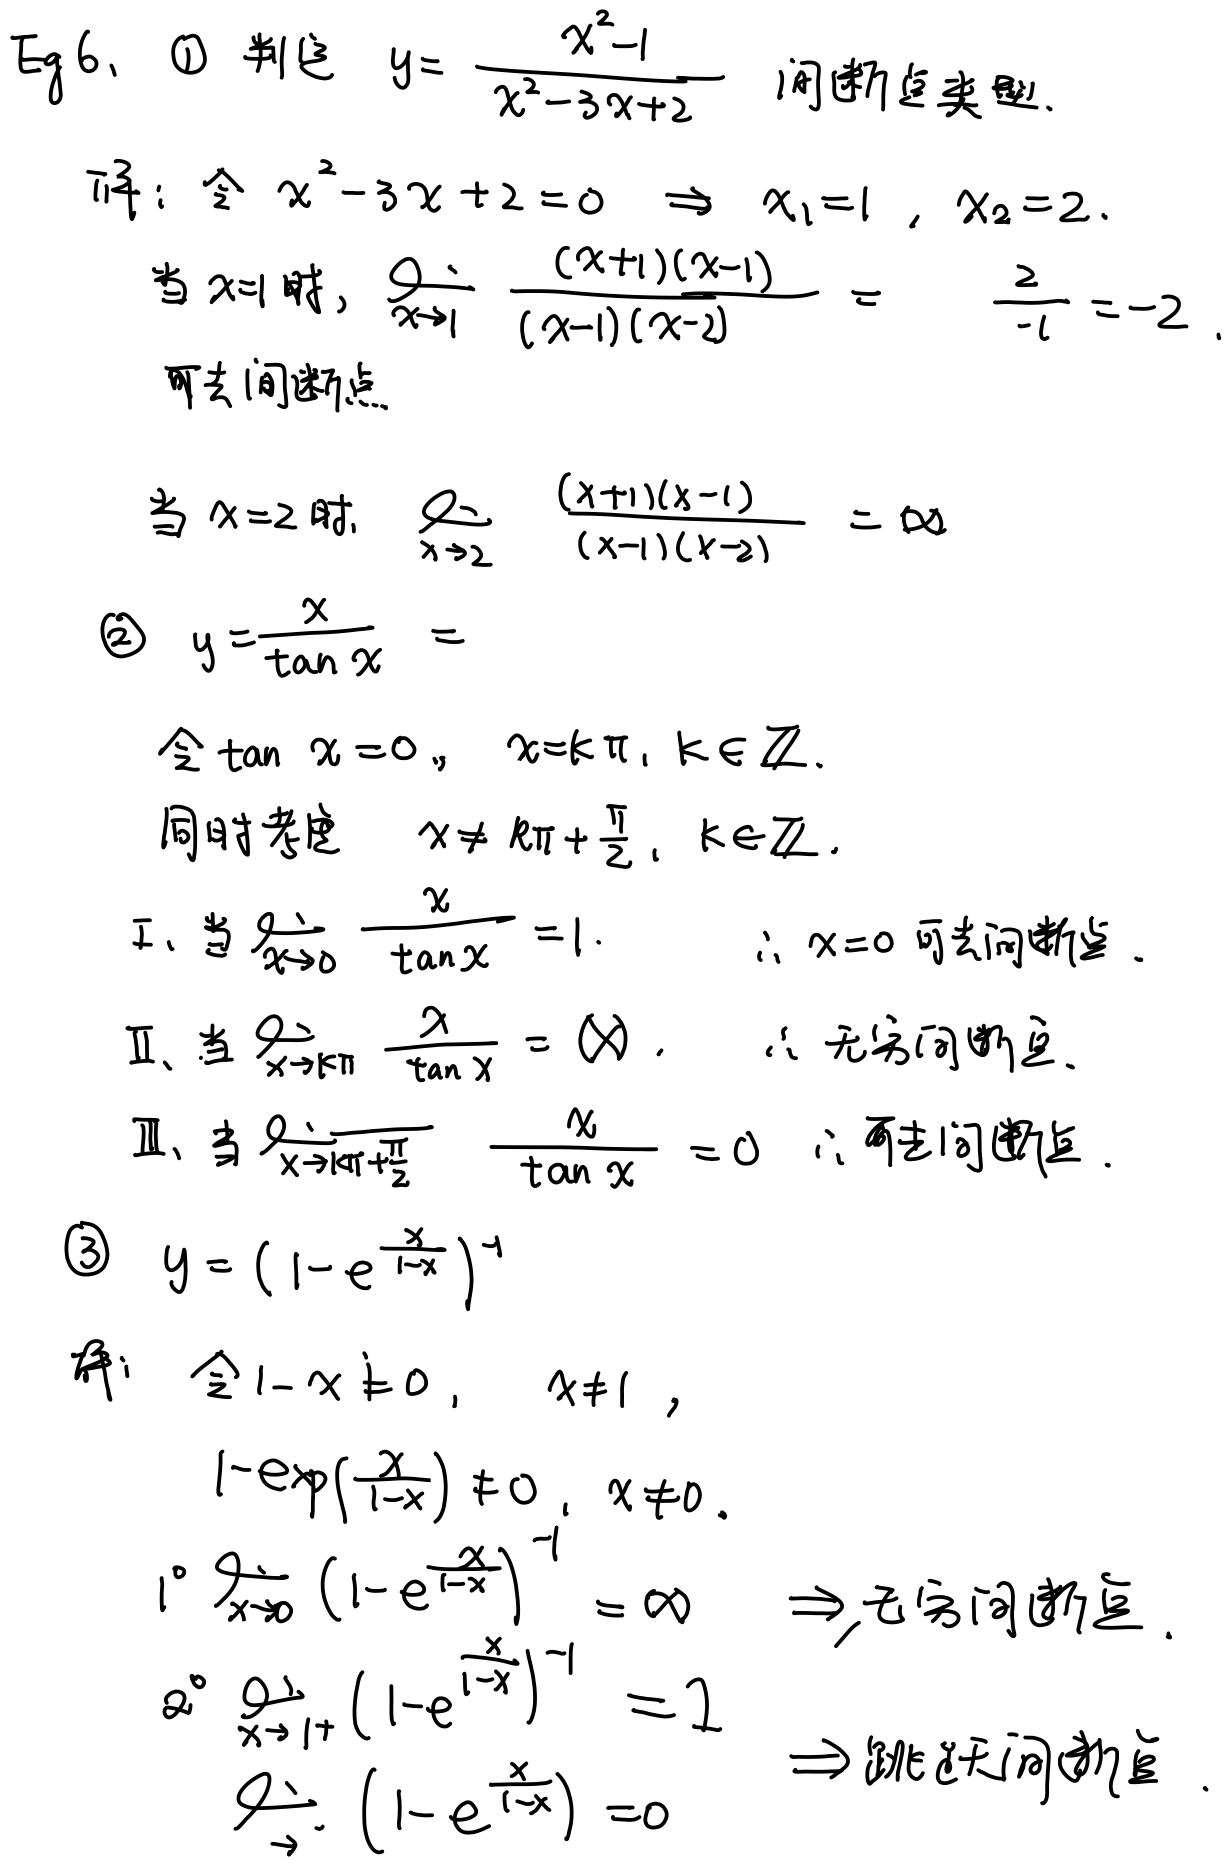 Eg 6、 ① 判定 y = \frac{x^2-1}{x^2-3x+2} 间断点类型.
解: 令 x^2-3x+2=0 ⇒ x_1=1, x_2=2.
当 x=1 时, \lim_{x→1} \frac{(x+1)(x-1)}{(x-1)(x-2)} = \frac{2}{-1} = -2.
可去间断点.
当 x=2 时, \lim_{x→2} \frac{(x+1)(x-1)}{(x-1)(x-2)} = ∞
② y = \frac{x}{\tan x} =
令 tan x = 0, x=kπ, k∈ℤ.
同时考虑 x ≠ kπ+\frac{π}{2}, k∈ℤ.
Ⅰ、当 \lim_{x→0} \frac{x}{\tan x} = 1. ∴ x=0 可去间断点.
Ⅱ、当 \lim_{x→kπ} \frac{x}{\tan x} = ∞. ∴ 无穷间断点.
Ⅲ、当 \lim_{x→kπ+\frac{π}{2}} \frac{x}{\tan x} = 0 ∴ 可去间断点.
③ y = (1-e^{\frac{x}{1-x}})^{-1}
解: 令 1-x ≠ 0, x≠1,
1-exp(\frac{x}{1-x}) ≠ 0, x≠0.
1° \lim_{x→0} (1-e^{\frac{x}{1-x}})^{-1} = ∞ ⇒ 无穷间断点.
2° \lim_{x→1+} (1-e^{\frac{x}{1-x}})^{-1} = 1
⇒ 跳跃间断点.
\lim_{→} (1-e^{\frac{x}{1-x}}) = 0